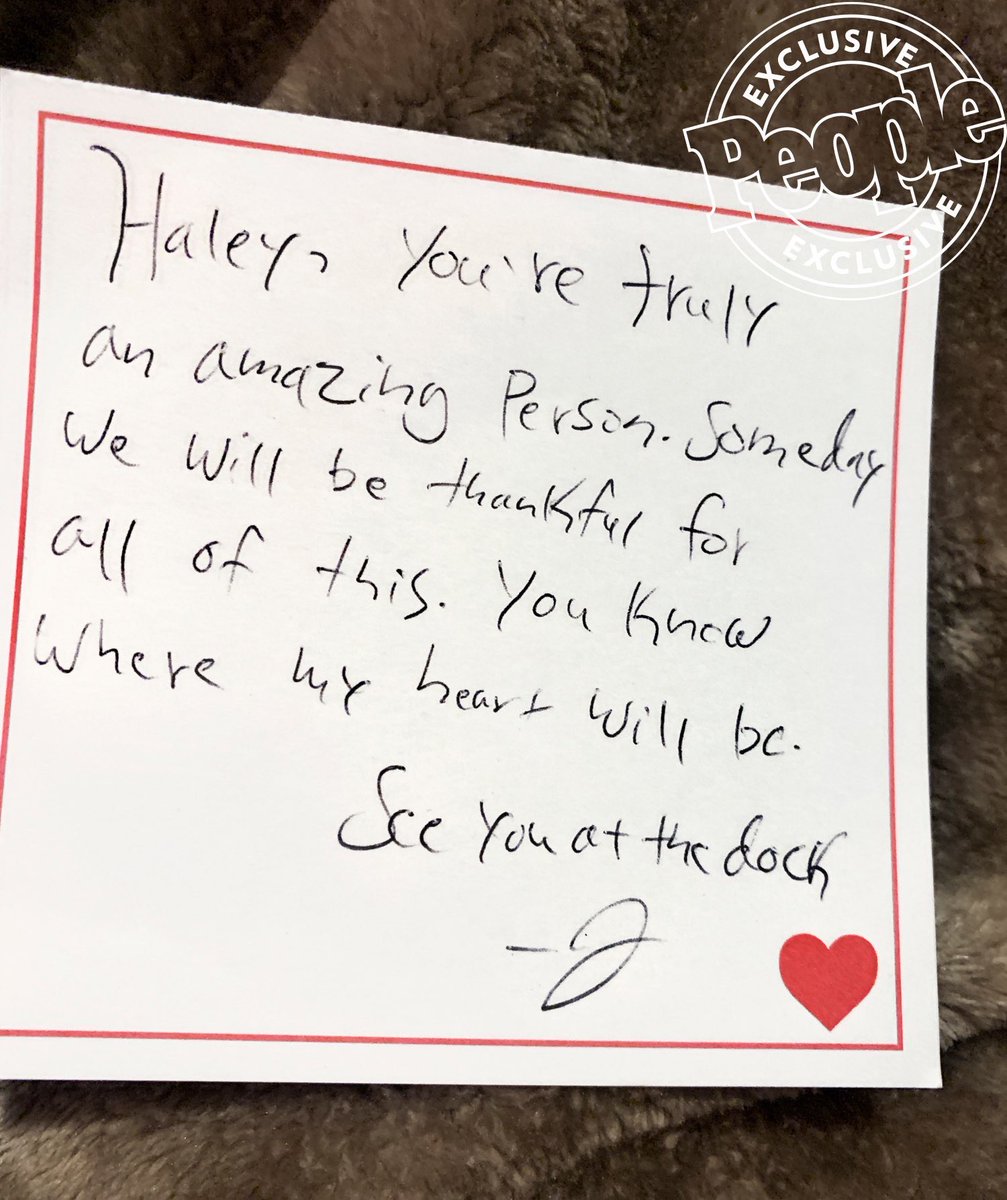 EXCLUSIVE
People
EXCLUSIVE
Haley, You're truly
an amazing Person. Someday
We will be thankful for
all of this. You know
where my heart will be.
See you at the dock
-J